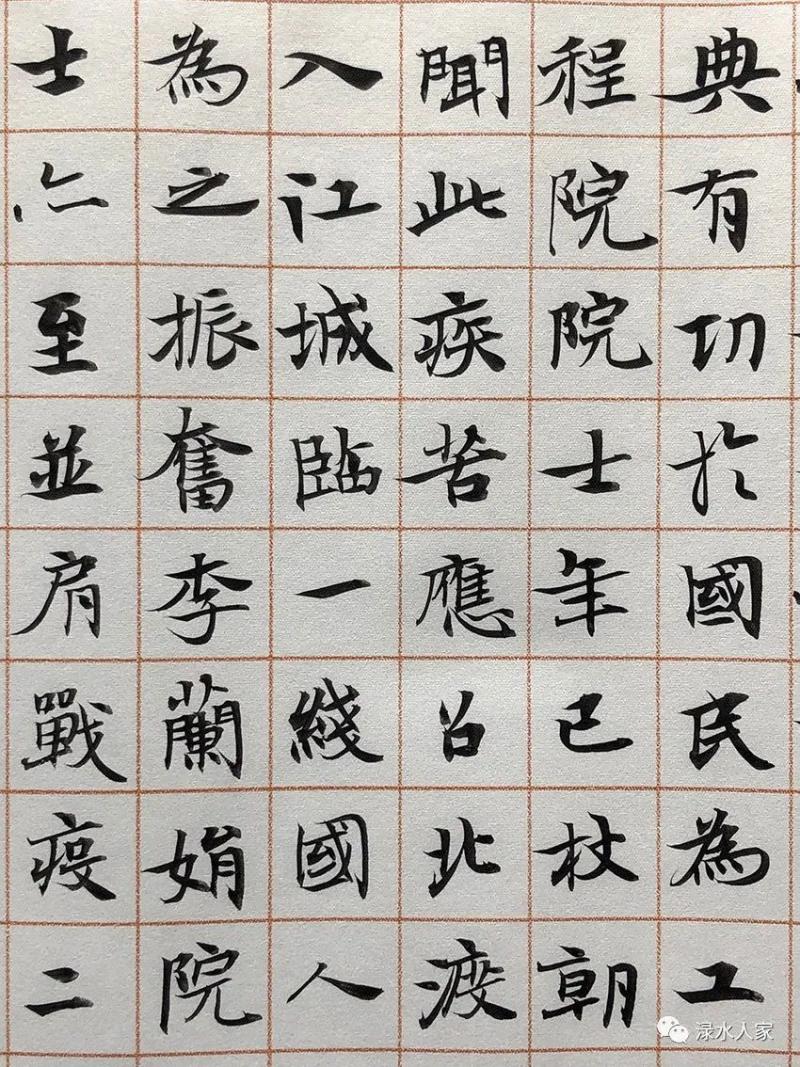 典有切於國民為工
程院院士年已杖朝
聞此疾苦應召北渡
入江城臨一綫國人
為之振奮李蘭娟院
士亦至並肩戰疫二
渌水人家